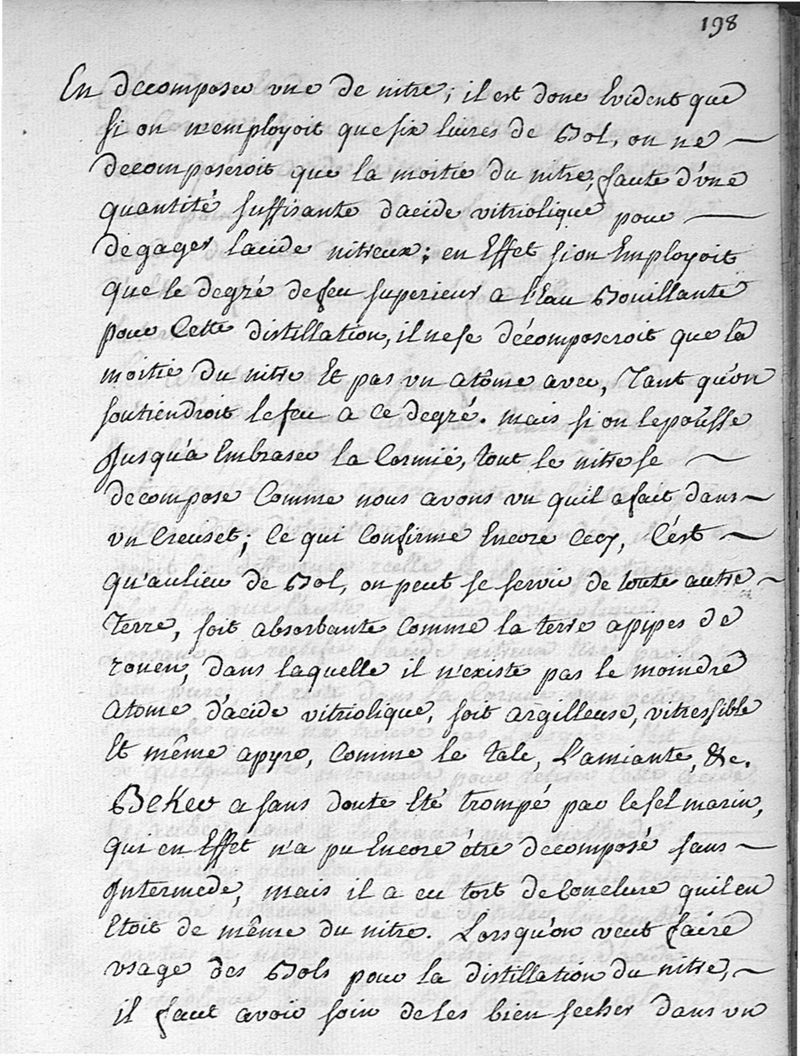 198
En decomposer vne de nitre; il est donc Evident que
si on n'employoit que six liures de Bol, on ne
decomposeroit que la moitie du nitre, faute d'vne
quantité suffisante d'acide vitriolique pour
degager lacide nitreux; en Effet si on Employoit
que le degré de feu superieur a l'Eau Bouillante
pour Cette distillation, il ne se décomposeroit que la
moitie du nitre Et pas vn atôme avec, Tant qu'on
soutiendroit le feu a ce degré. mais si on le poûsse
Jusqu'a Embraser la Cornüe, Tout le nitre se
decompose Comme nous avons vu quil a fait dans
vn Creuset; Ce qui Confirme Encore Cecy, C'est
qu'au lieu de Bol, on peut se servir de toute autre
Terre, soit absorbante Comme la terre a pipes de
rouen, dans laquelle il n'existe pas le moindre
atome d'acide vitriolique, soit argilleuse, vitressible
Et même apyre, Comme le Talc, L'amiante, &c.
Beker a sans doute Eté trompé par le sel marin,
qui en Effet n'a pu Encore être decomposé sans
Jntermede, mais il a eu tort de Conclure quil en
Etoit de même du nitre. Lorsqu'on veut faire
vsage des Bols pour la distillation du nitre,
il faut avoir soin de les bien secher dans vn